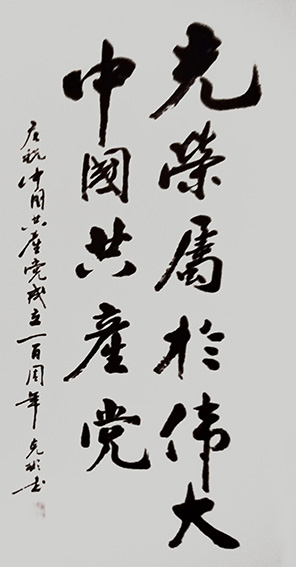 光榮属於伟大
中國共產党
庆祝中国共産党成立一百周年 克彬书